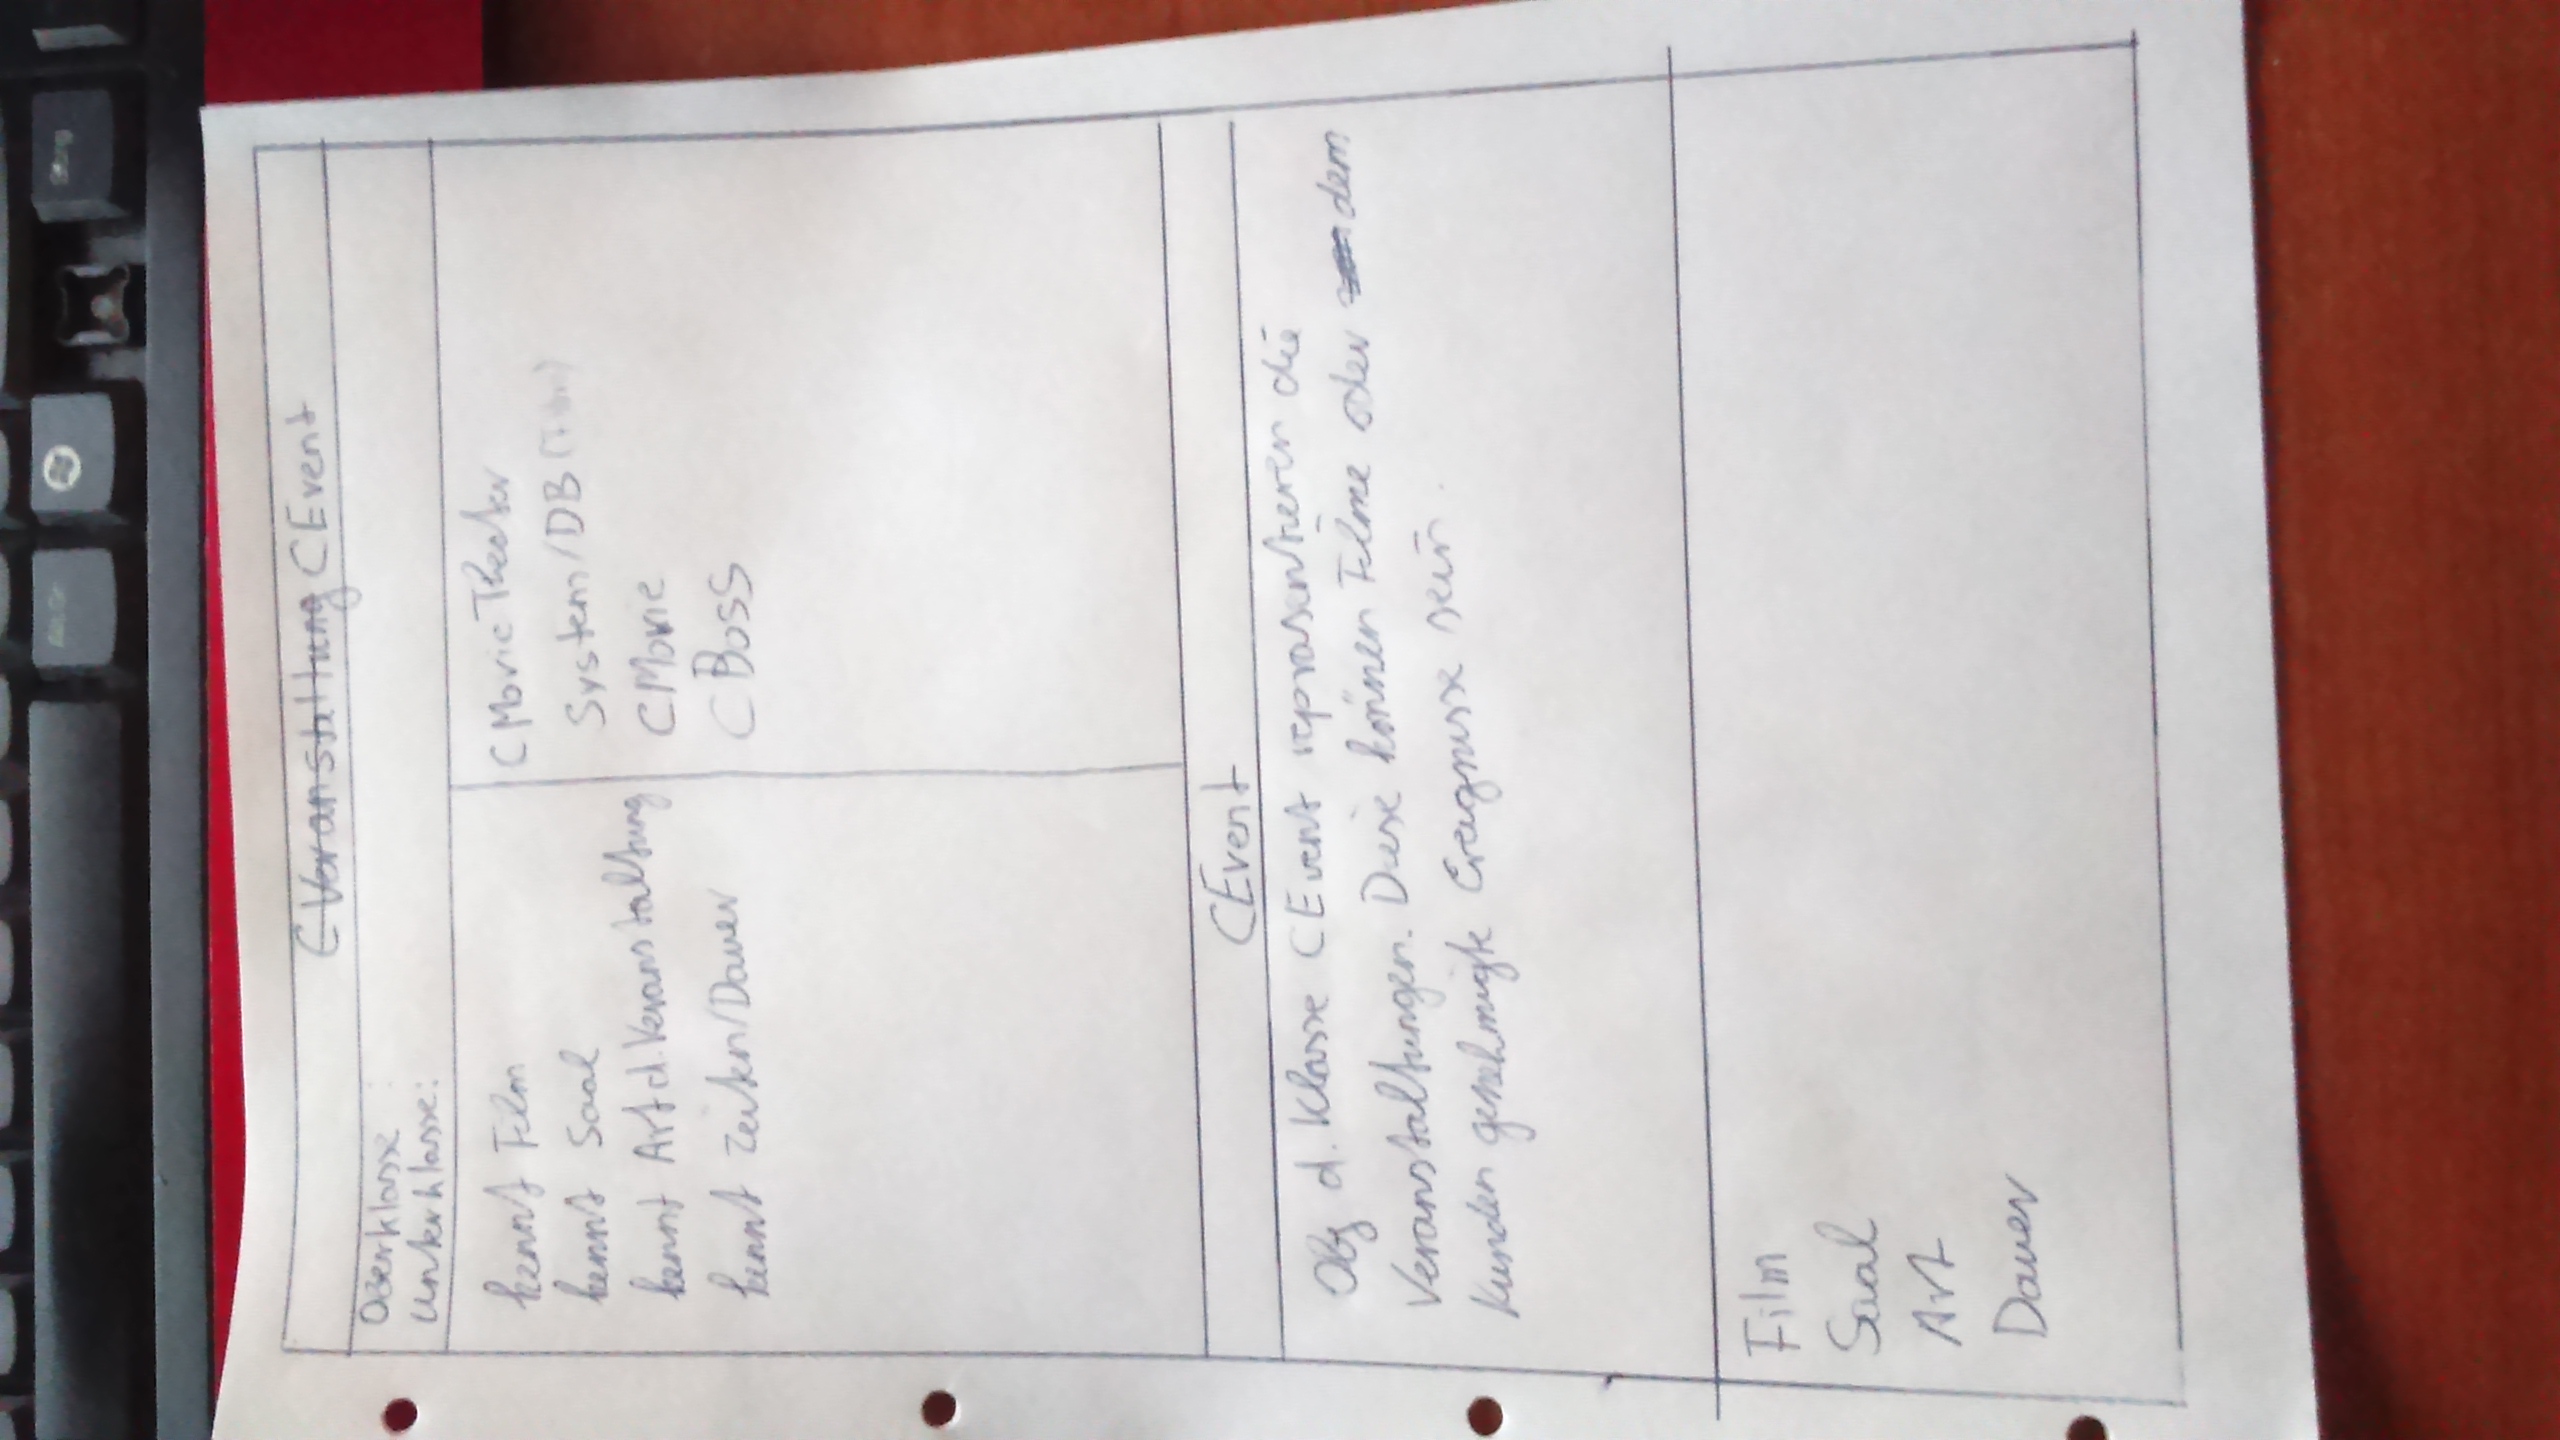 Alt Gr
Strg
C Veranstaltung CEvent
Oberklasse :
Unterklasse:
kennt Film
kennt Saal
kennt Art d. Veranstaltung
kennt Zeiten/Dauer
CMovieTheater
System/DB
CMovie
CBoss
CEvent
Obj d. Klasse CEvent repräsentieren die
Veranstaltungen. Diese können Filme oder dem
Kunden genehmigte Ereignisse sein.
Film
Saal
Art
Dauer